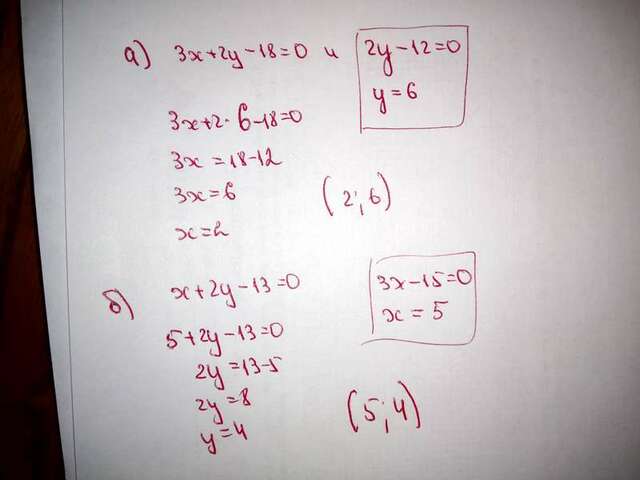 а) 3x+2y-18=0 и 2y-12=0
y=6
3x+2·6-18=0
3x=18-12
3x=6
x=2
(2;6)
б) x+2y-13=0
3x-15=0
x=5
5+2y-13=0
2y=13-5
2y=8
y=4
(5;4)